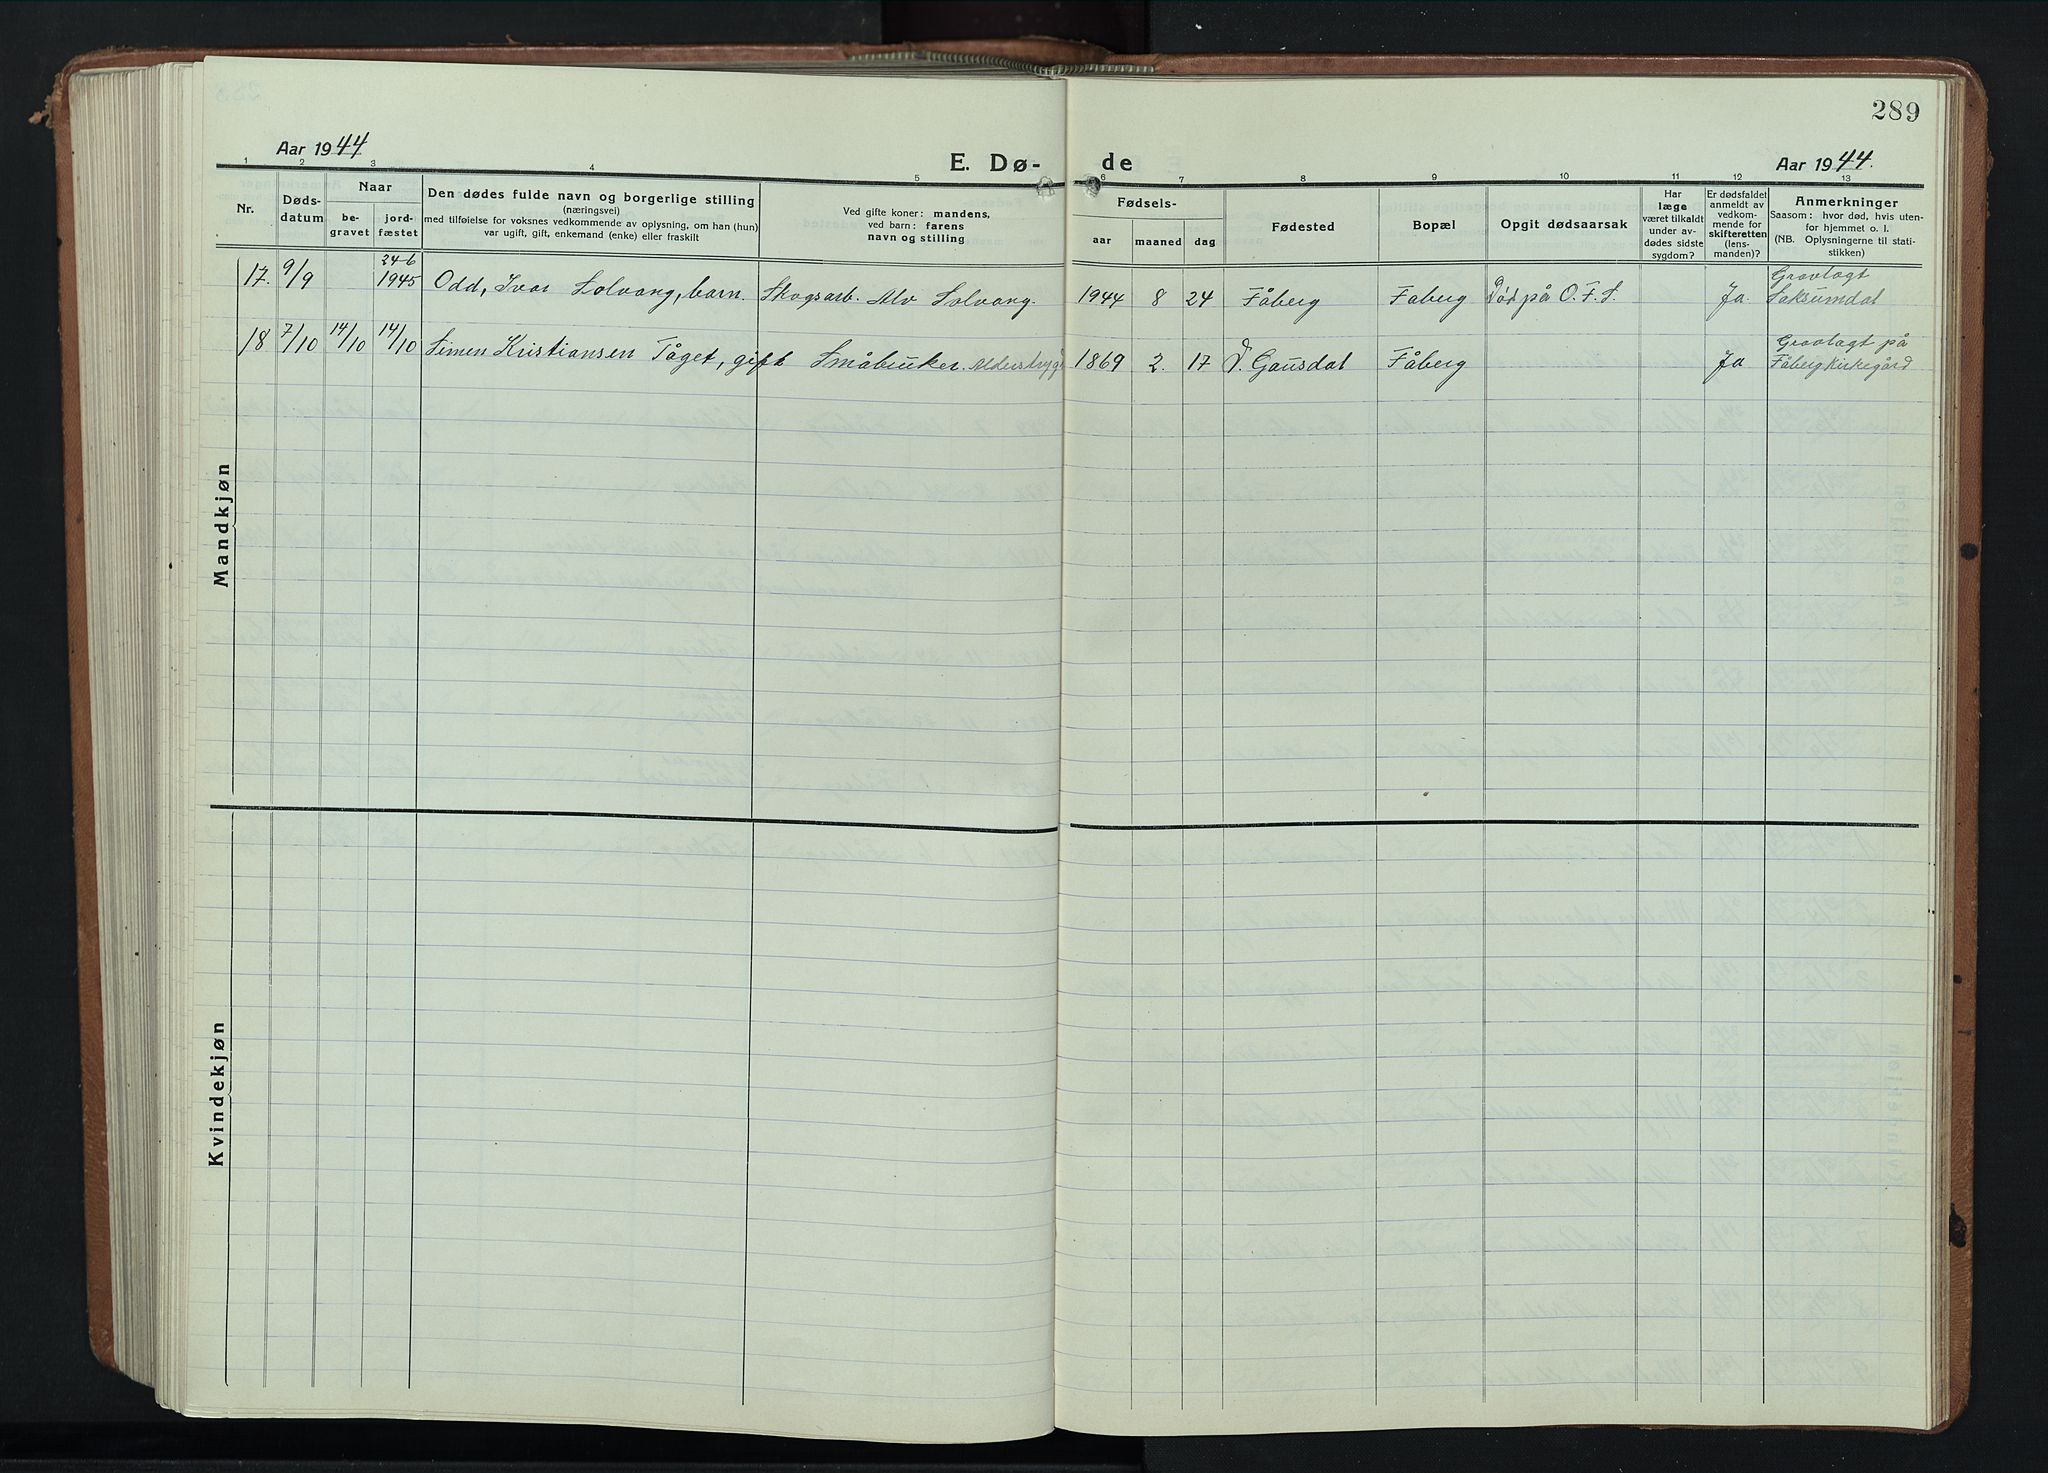 289
Aar 1944
E. Dø-
de
Aar 1944.
1 2 3 4 5 6 7 8 9 10 11 12 13
Nr.
Døds-
datum
Naar
be-
gravet
jord-
fæstet
Den dødes fulde navn og borgerlige stilling
(næringsvei)
med tilføielse for voksnes vedkommende av oplysning, om han (hun)
var ugift, gift, enkemand (enke) eller fraskilt
Ved gifte koner: mandens,
ved barn: farens
navn og stilling
Fødsels-
aar
maaned
dag
Fødested
Bopæl
Opgit dødsaarsak
Har
læge
været tilkaldt
under av-
dødes sidste
sygdom?
Er dødsfaldet
anmeldt av
vedkom-
mende for
skifteretten
(lens-
manden)?
Anmerkninger
Saasom: hvor død, hvis uten-
for hjemmet o. l.
(NB. Oplysningerne til stati-
stikken)
Mandkjøn
17. 9/9 24-6 1945 Odd, Ivar Solvang, barn. Skogsarb. Alv Solvang. 1944 8 24 Fåberg Faberg Død på O.F.S. Ja. Gravlagt Saksumdal
18 7/10 14/10 14/10 Simen Kristiansen Tåget, gift Småbruker. 1869 2. 17 Gausdal Fåberg Ja Gravlagt på Fåberg Kirkegård
Kvindekjøn